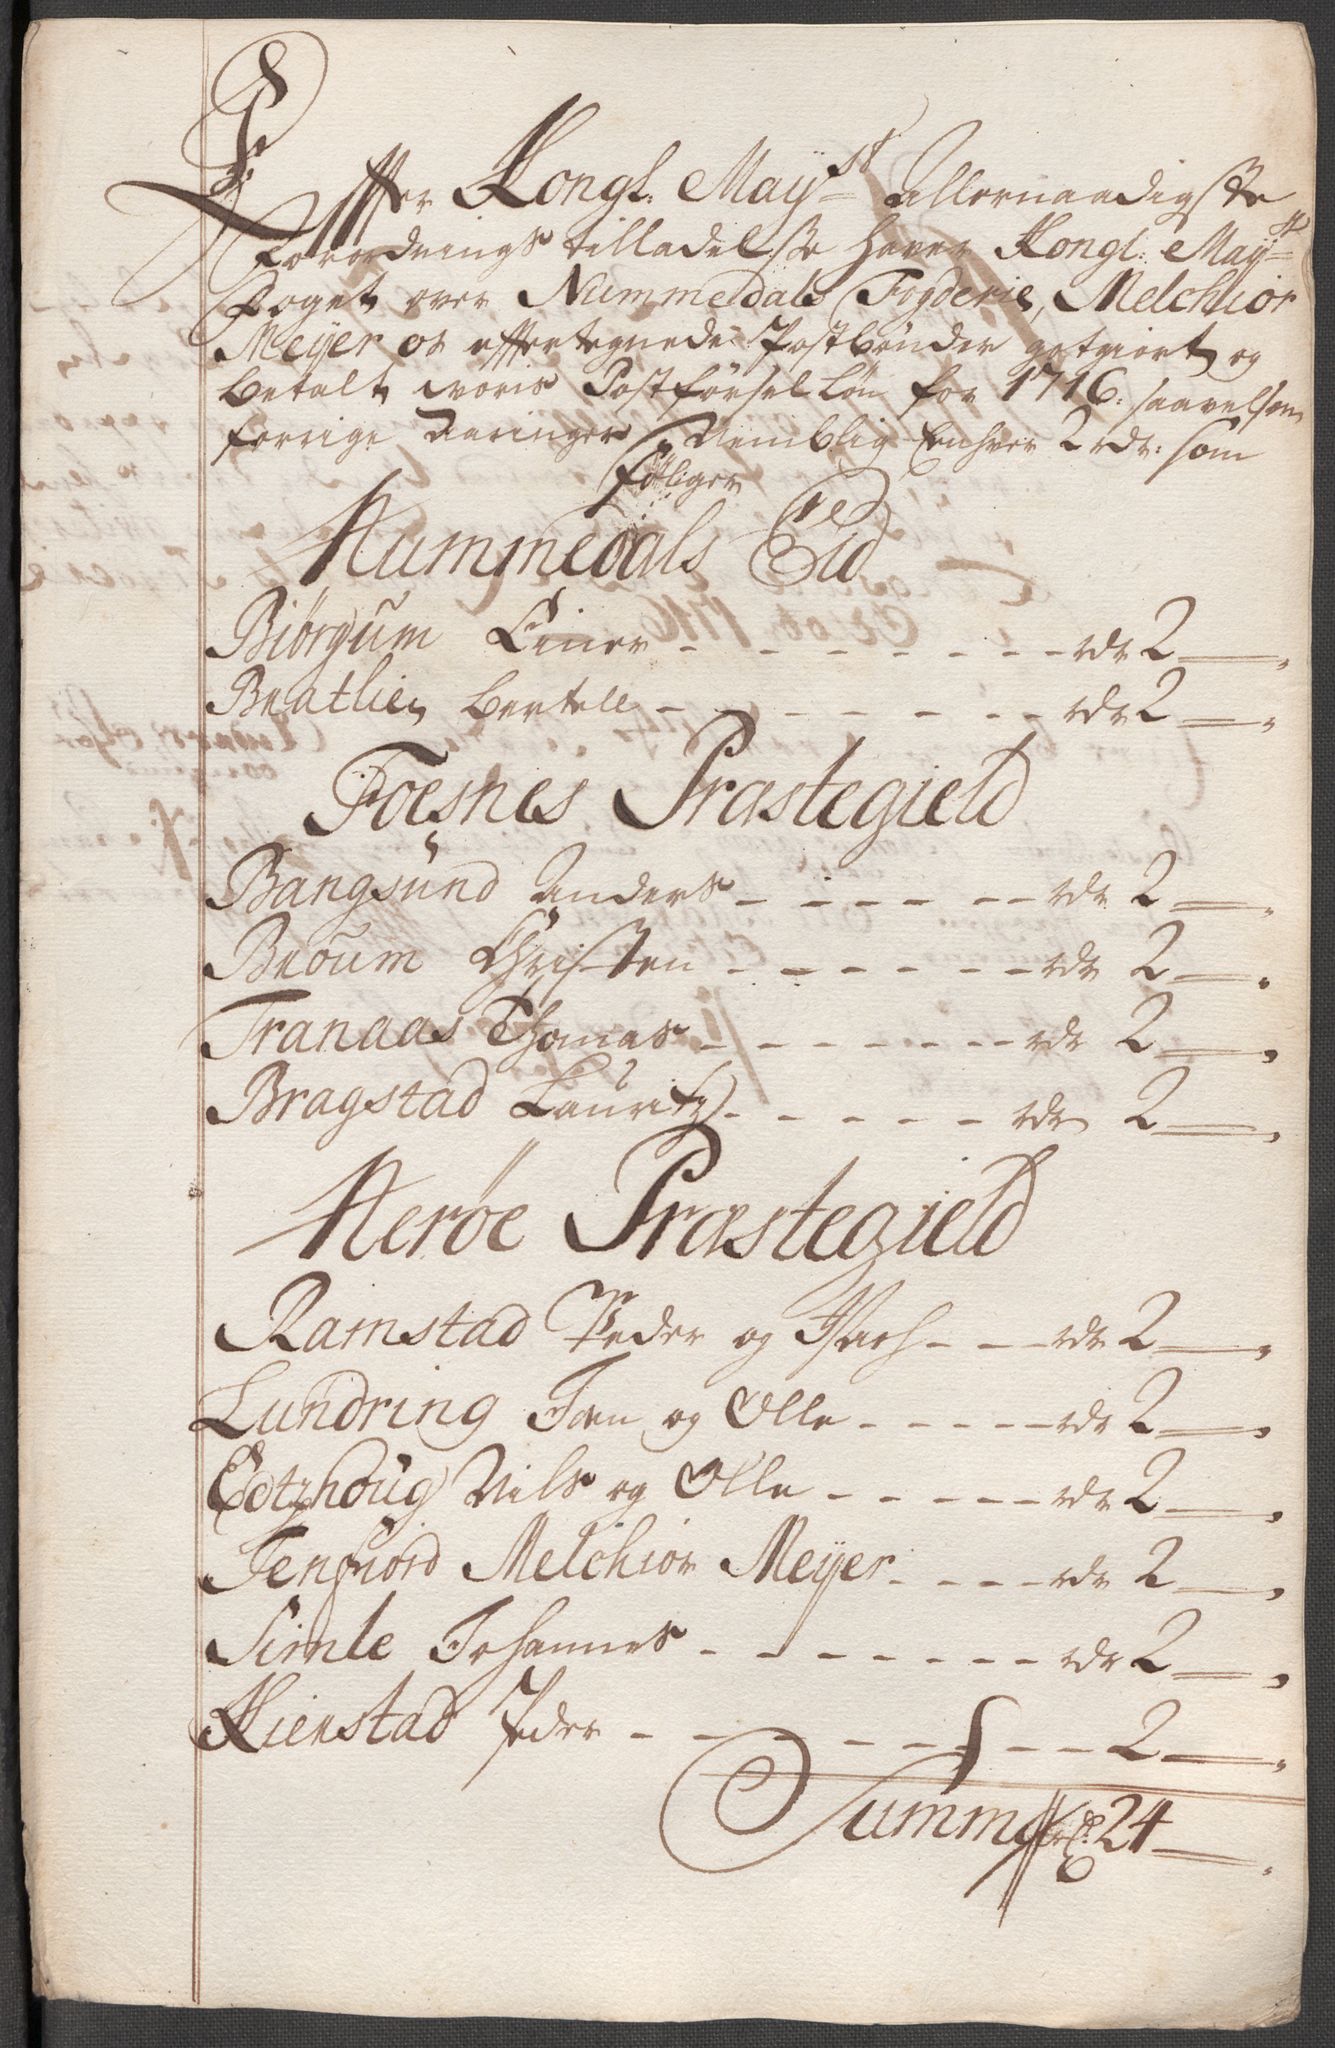 Effter Kongl: May:st allernaadigste
forordnings tilladelse haver Kongl: May:st
Foget over Nummedals Fogderie, Melchior
Meyer os effter tegnede Postbønder gotgiort og
betalt voris Postførsel Løn for 1716. saavelsom
forrige aaringer, Nemblig Enhver 2 rdr: som
følger
Nummedals Eid
Biørgum Einer - - - - - - - rdr 2 —
Bratlien bertell - - - - - - rdr 2 —
Foesnes Præstegield
Bangsund Anders - - - - - - rdr 2 —
Broum Christen - - - - - - rdr 2 —
Tranaas Thomas - - - - - - rdr 2 —
Bragstad Lauritz - - - - - rdr 2 —
Nerøe Præstegield
Ramstad Peder og Isach - - - rdr 2 —
Lundring Joen og Olle - - - - - rdr 2 —
Eotzhoug Nils og Olle - - - - - rdr 2 —
Tenfiord Melchior Meyer - - - - rdr 2 —
Simle Johannes - - - - - - - rdr 2 —
Kienstad Peder - - - - - - - 2 —
Summa 24 —